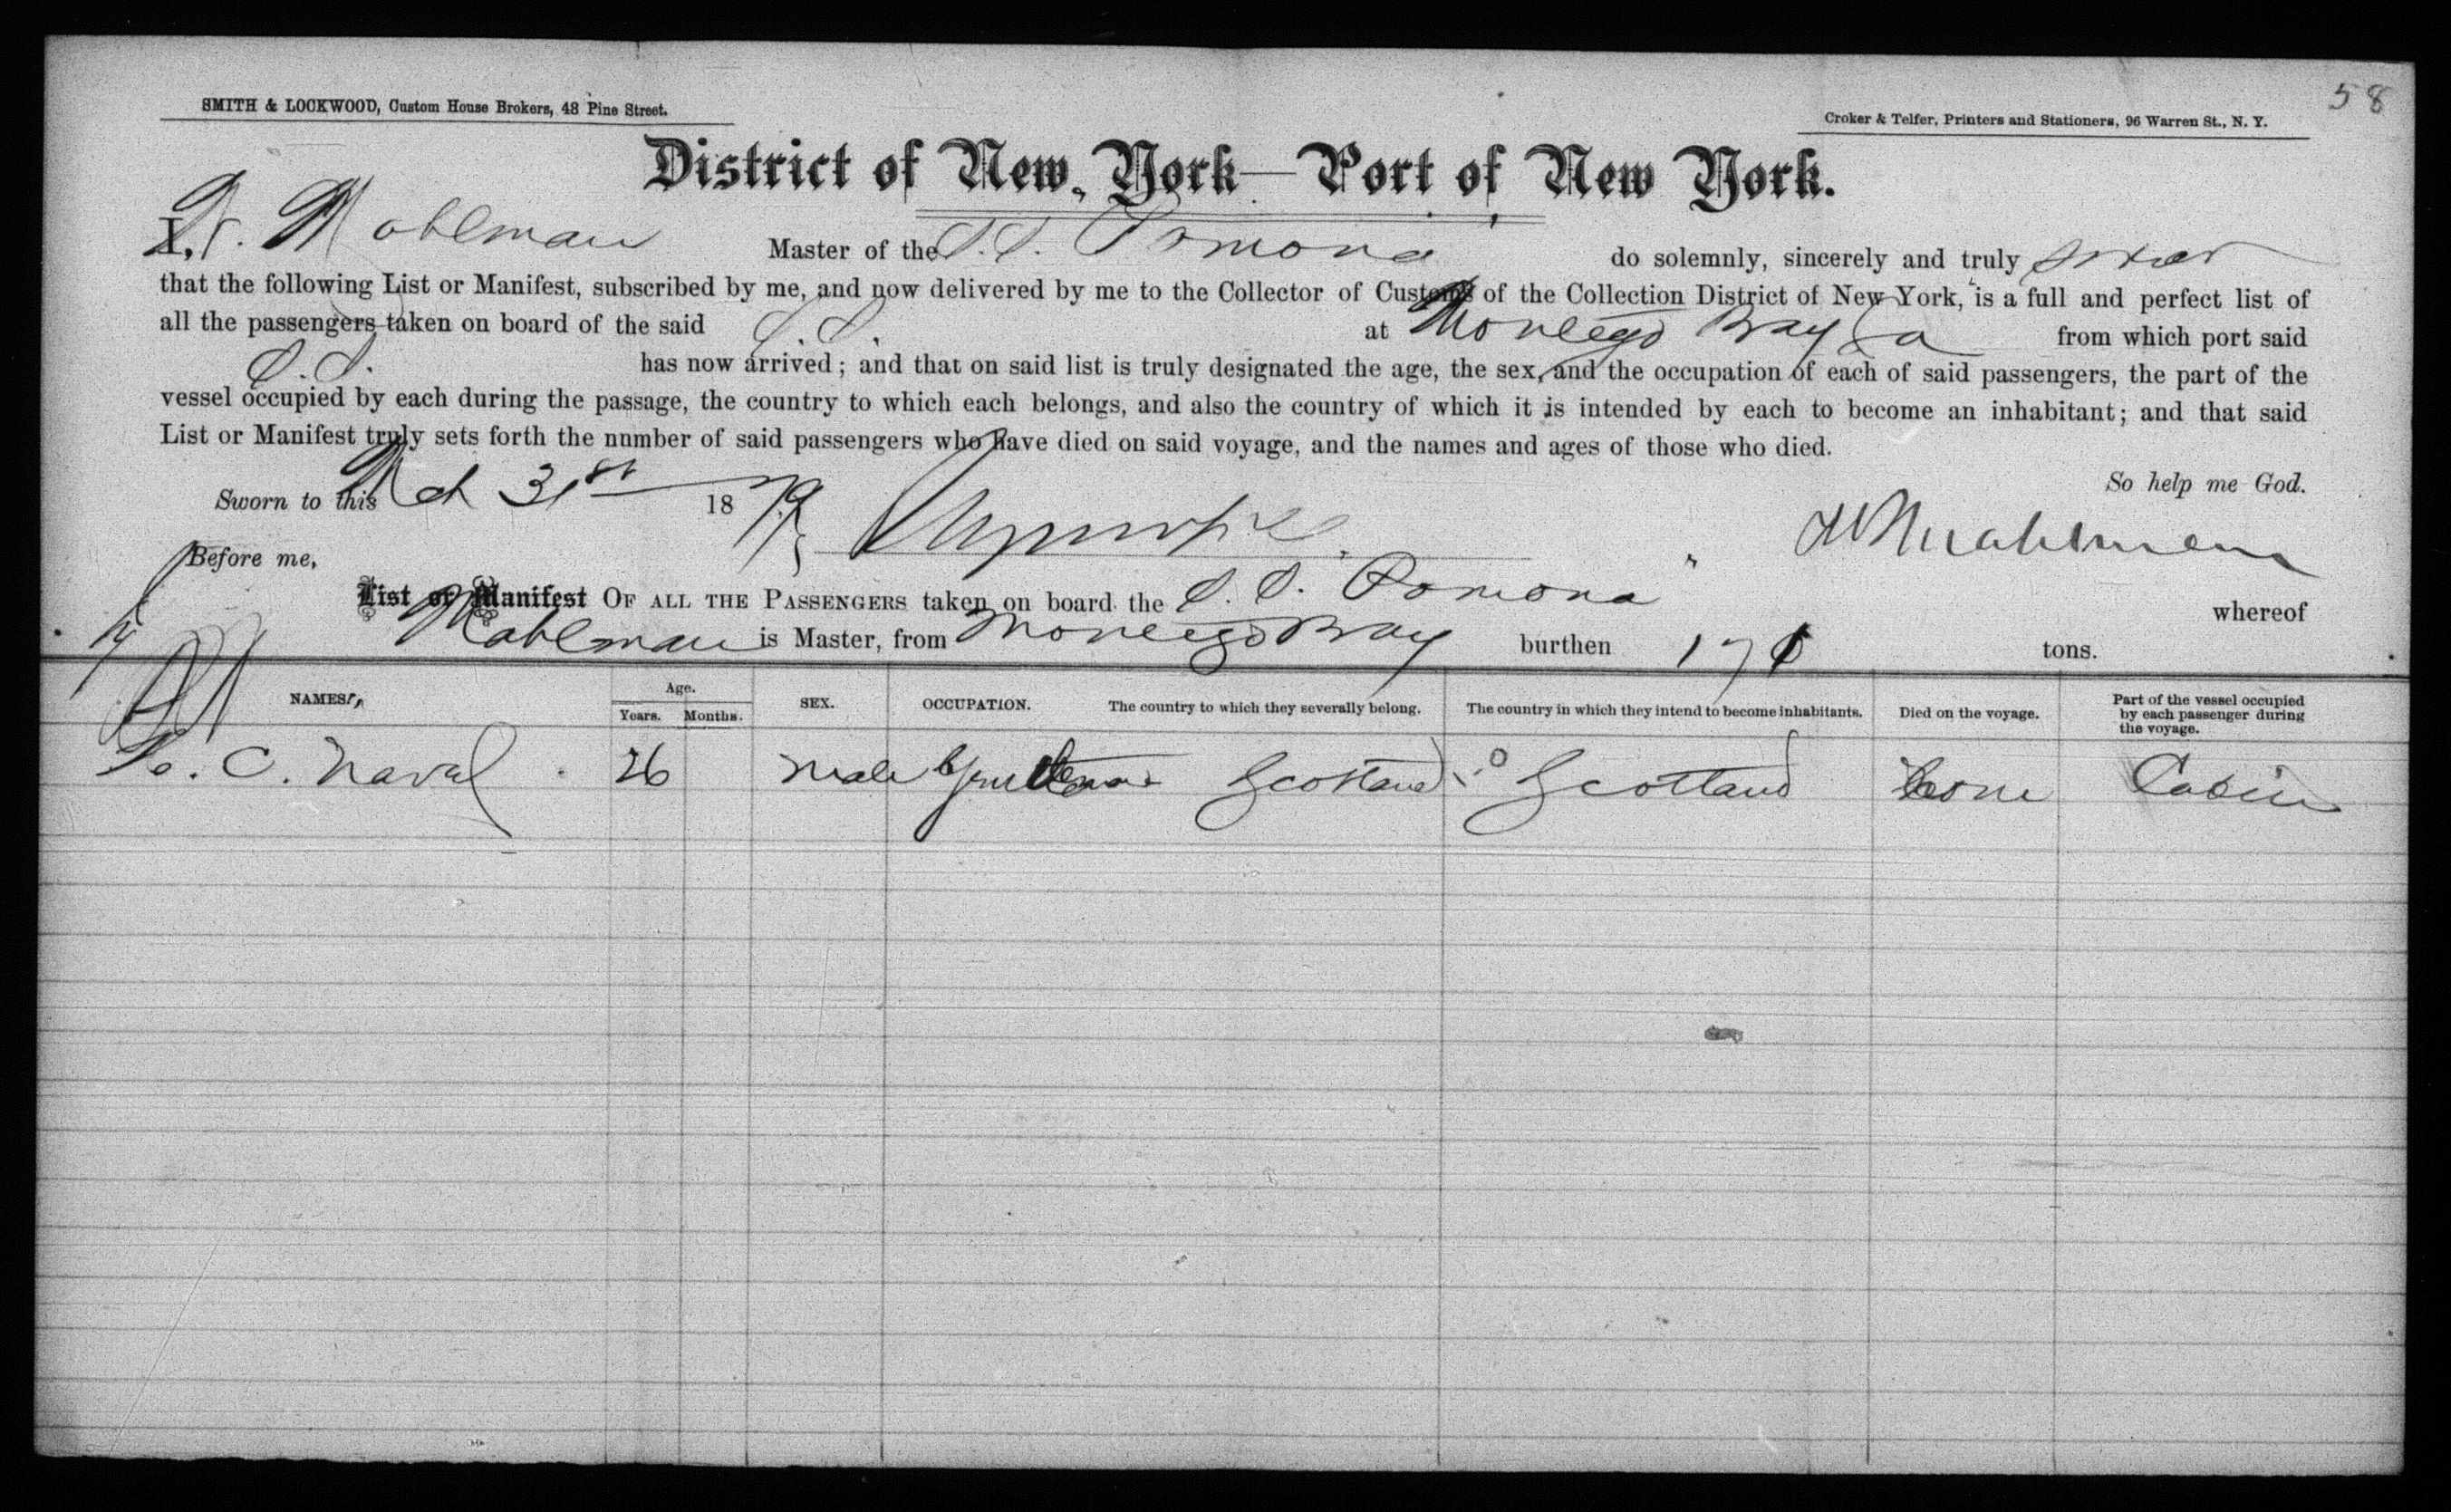 58
SMITH & LOCKWOOD, Custom House Brokers, 48 Pine Street.
Croker & Telfer, Printers and Stationers, 96 Warren St., N. Y.
District of New York—Port of New York.
I, Mahlman Master of the S.S. Pomona do solemnly, sincerely and truly swear
that the following List or Manifest, subscribed by me, and now delivered by me to the Collector of Customs of the Collection District of New York, is a full and perfect list of
all the passengers taken on board of the said S.S. at Montego Bay Ja from which port said
S.S. has now arrived; and that on said list is truly designated the age, the sex, and the occupation of each of said passengers, the part of the
vessel occupied by each during the passage, the country to which each belongs, and also the country of which it is intended by each to become an inhabitant; and that said
List or Manifest truly sets forth the number of said passengers who have died on said voyage, and the names and ages of those who died.
So help me God.
Sworn to this Mch 31st 1879
Mahlman
Before me,
List or Manifest OF ALL THE PASSENGERS taken on board the S.S. Pomona whereof
Mahlman is Master, from Montego Bay burthen tons.
NAMES Age. Years. Months. SEX. OCCUPATION. The country to which they severally belong. The country in which they intend to become inhabitants. Died on the voyage. Part of the vessel occupied by each passenger during the voyage.
C. Naval 26 Male Gentleman Scotland Scotland None Cabin